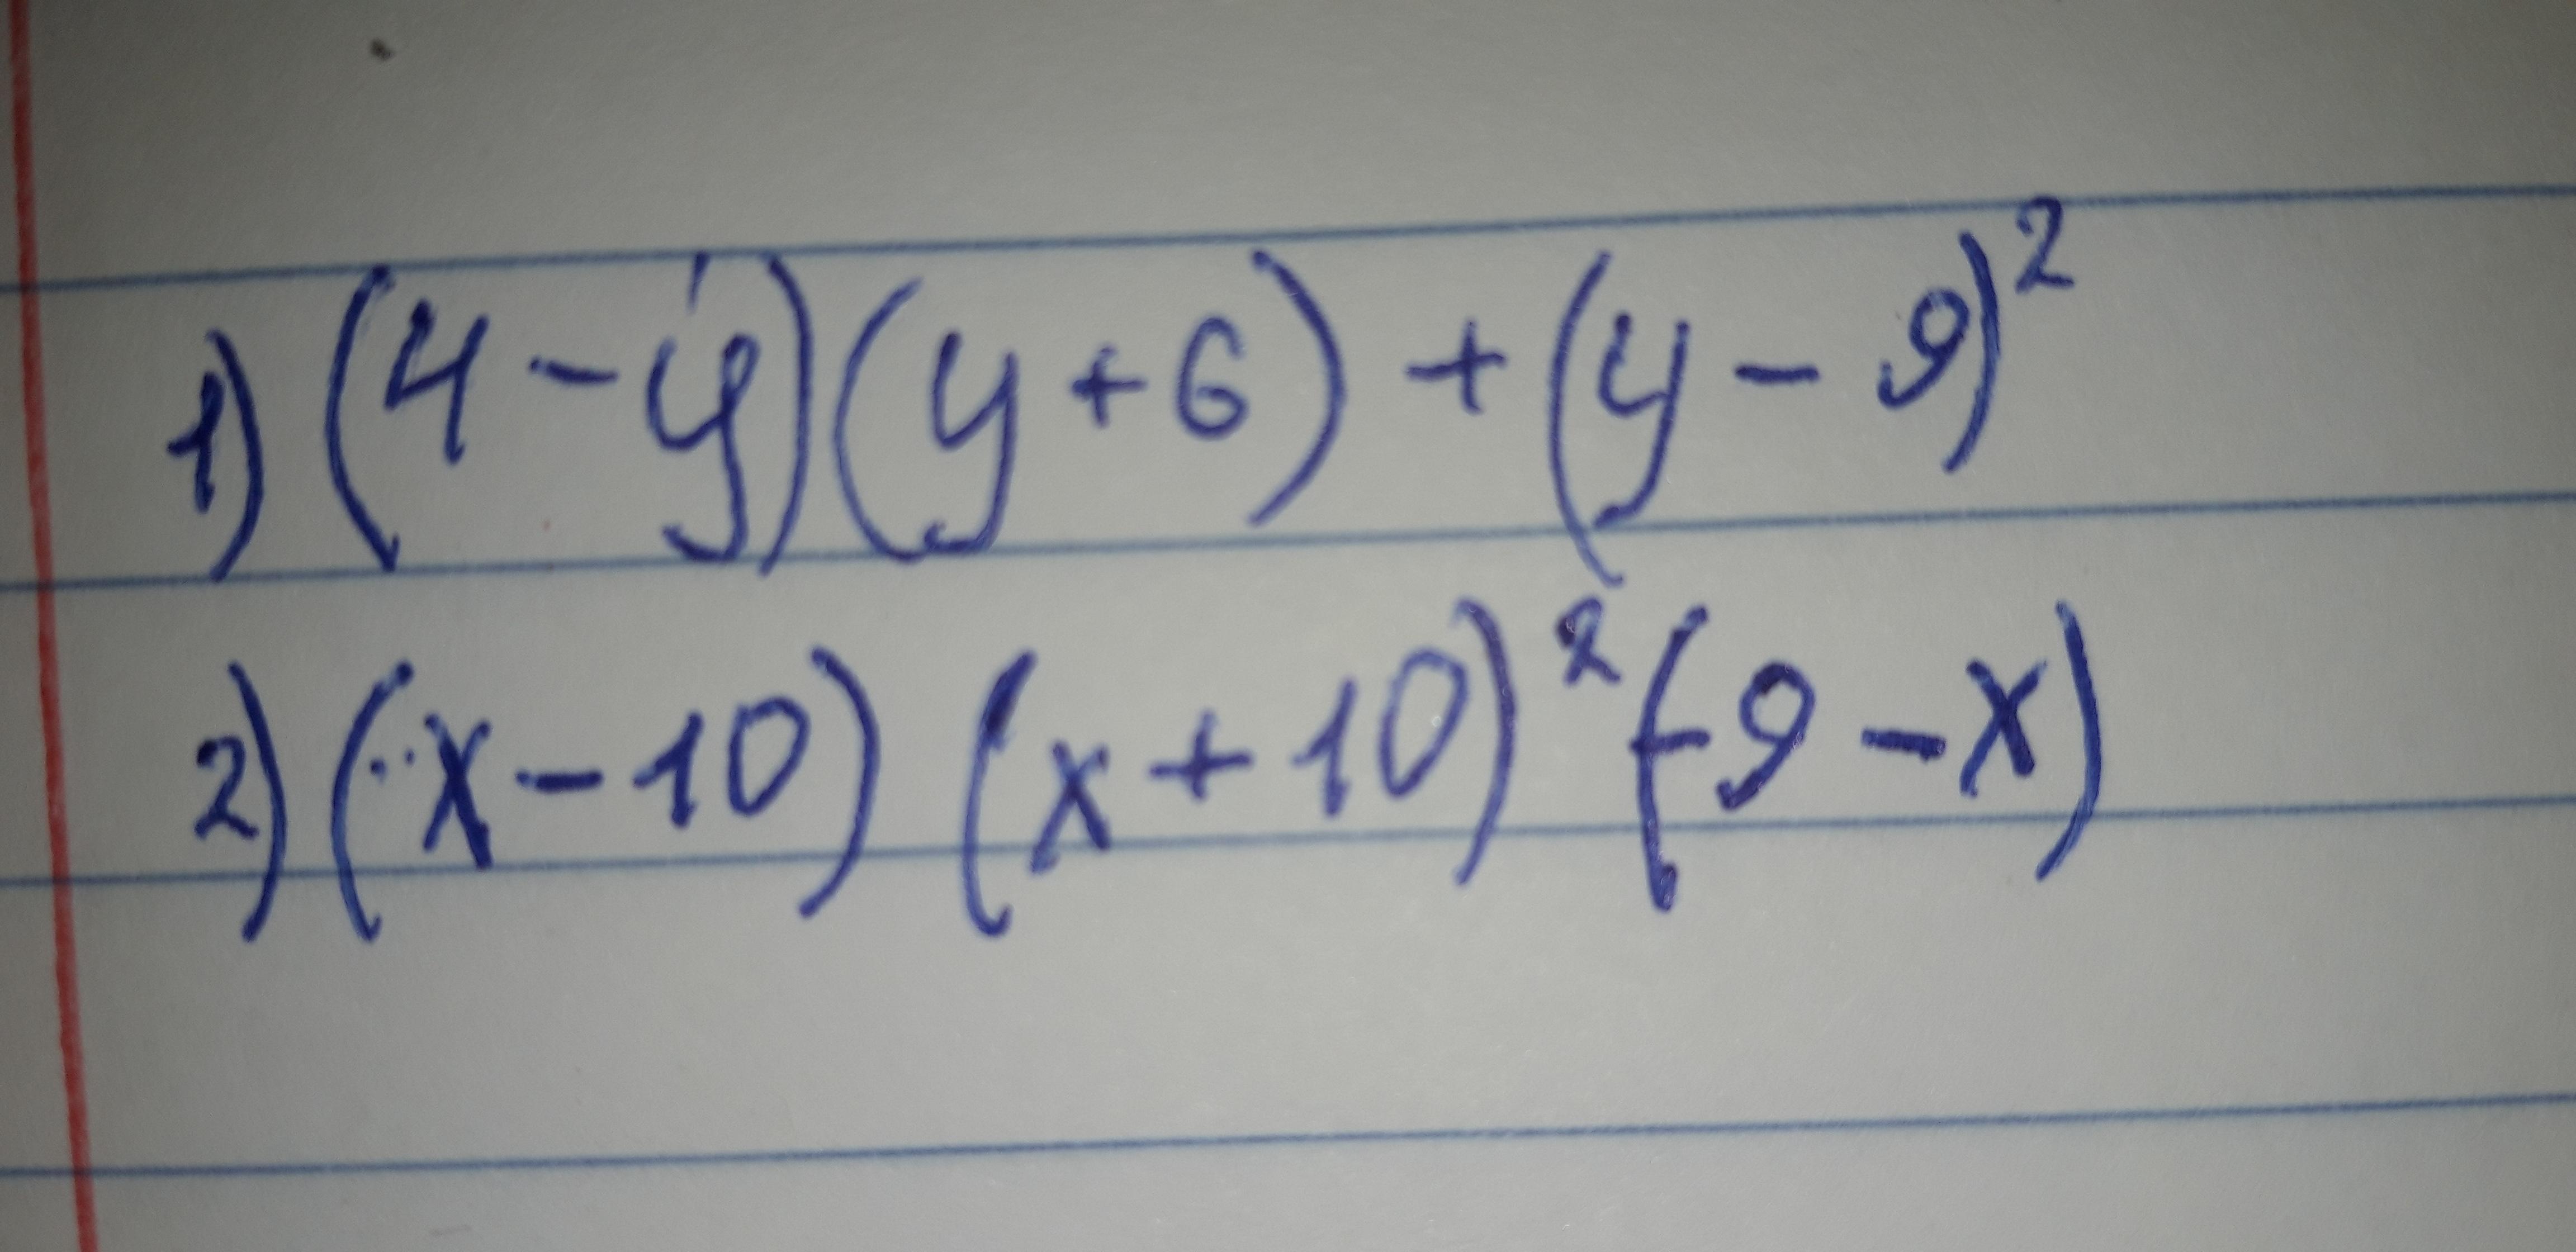 1) (4-y)(y+6)+(y-9)²
2) (x-10) (x+10)²(-9-x)